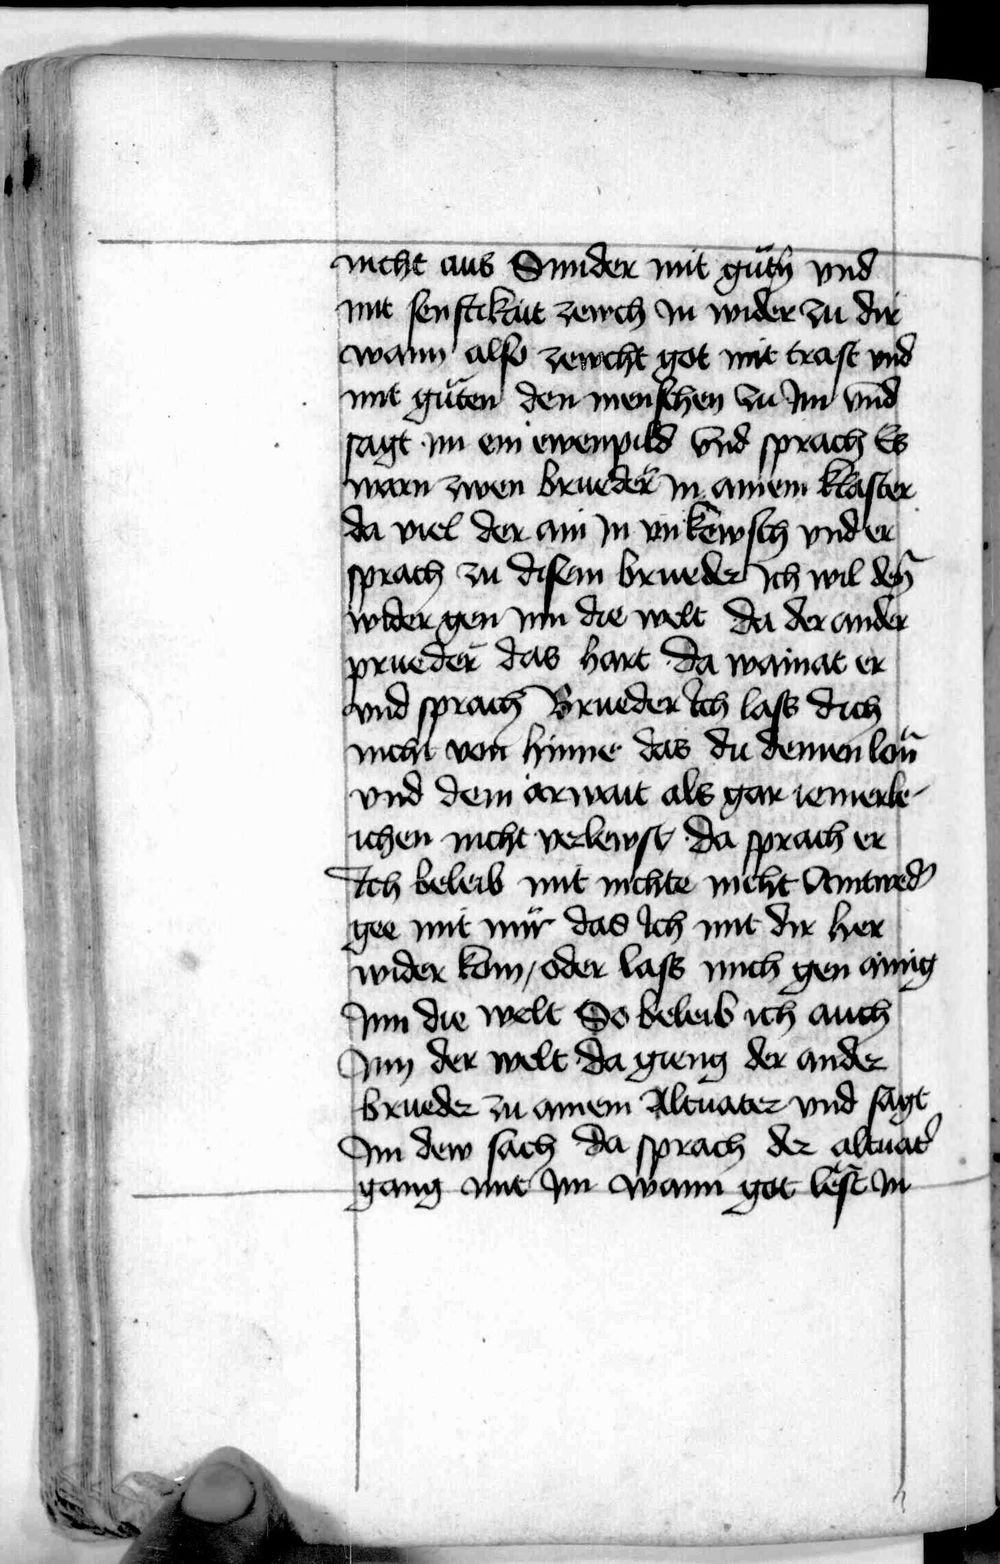 nicht aus Sunder mit gütn̄ vnd
mit senftikait zewch in wider zu dir
wann also zewcht got mit trast vnd
mit güten den menschen zu Im vnd
sagt im ein ewenpild vnd sprach Es
warn zwen brueder in ainem klaster
da viel der ain in vnkewsch vnd er
sprach zu disem brueder ich wil den̄
wider gen inn die welt da der ander
prueder das hart da wainat er
vnd sprach Brueder Ich lass dich
nicht von hinne das du deinen lon̄
vnd dein arwait als gar iemerle
ichen nicht verlewst da sprach er
Ich beleib mit nichte nicht Aintwed̾
gee mit mir das Ich mit dir her
wider kom / oder lass mich gen ainig
Inn die welt So beleib ich auch
Inn der welt da gieng der ander
brueder zu ainem Altuater vnd sagt
Im dew sach da sprach der altuat̾
gang mit Im wann got lest in